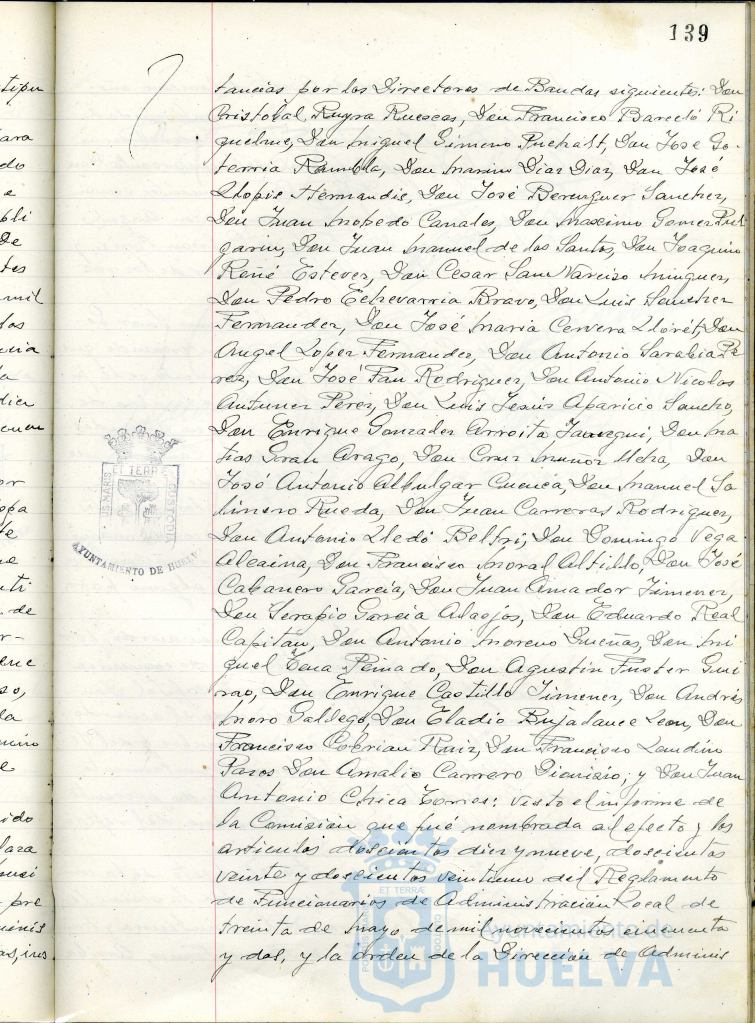 139
tancias por los Directores de Bandas siguientes: Don
Cristobal Ruyra Ruescas, Don Francisco Barceló Ri
quelme, Don Miguel Gimeno Puchalt, Don Jose Go-
terria Rambla, Don Marino Diaz Diaz, Don José
Llopis Hernandis, Don José Berenguer Sanchez,
Don Juan Mopedo Canales, Don Maximo Gomez Pul
garin, Don Juan Manuel de los Santos, Don Joaquin
Reñé Estevez, Don Cesar San Narciso Minguez,
Don Pedro Echevarria Bravo, Don Luis Sanchez
Fernandez, Don José Maria Cervera Lloret, Don
Angel Lopez Fernandez, Don Antonio Sarabia Pe
rez, Don José Pan Rodriguez, Don Antonio Nicolas
Antunez Perez, Don Luis Jesús Aparicio Sancho,
Don Enrique Gonzalez Arroita Jauregui, Don Ma
tias Gran Arago, Don Cruz Muñoz, Don
José Antonio Albulgar Cuenca, Don Manuel Sa
linero Rueda, Don Juan Carreras Rodriguez,
Don Antonio Lledó Beltri, Don Domingo Vega
Alcaina, Don Francisco Moral Altillo, Don José
Cabanero Garcia, Don Juan Amador Jimenez,
Don Serapio Garcia Alaejos, Don Eduardo Real
Capitan, Don Antonio Moreno Dueñas, Don Mi
guel Cena Peinado, Don Agustin Fuster Gui
rao, Don Enrique Castillo Jimenez, Don Andrés
Moro Gallego, Don Eladio Bujalance Leon, Don
Francisco Cebrian Ruiz, Don Francisco Landin
Pazos Don Amalio Carrero Dionisio; y Don Juan
Antonio Chica Torres: visto el informe de
la Comisión que fué nombrada al efecto y los
articulos doscientos diez y nueve, doscientos
veinte y doscientos veintiuno del Reglamento
de Funcionarios de Administración Local de
treinta de Mayo de mil novecientos cincuenta
y dos, y la orden de la Dirección de Adminis
PORTUS MARIS ET TERRE CUSTODIA
AYUNTAMIENTO DE HUELVA
ET TERRÆ
Ayuntamiento de
HUELVA